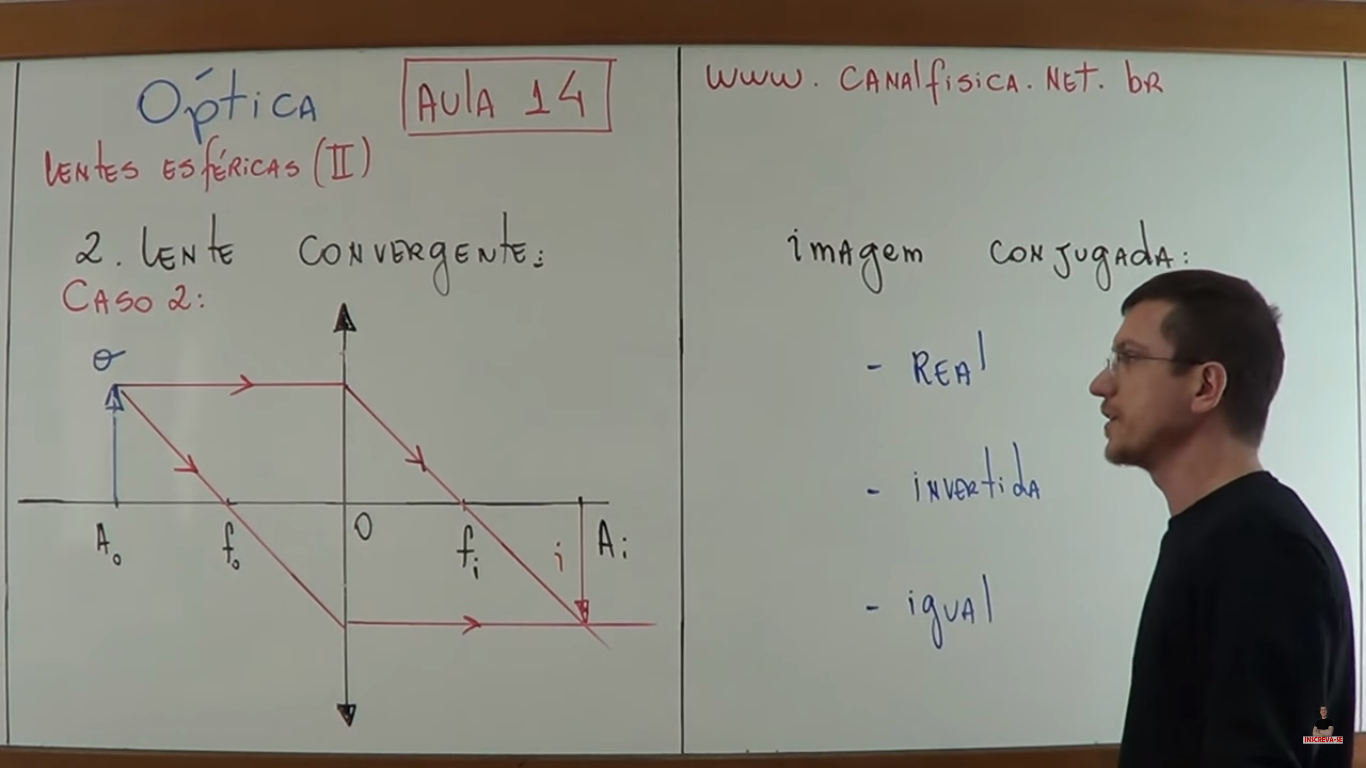 Óptica
AULA 14
LENTES ESFÉRICAS (II)
2. LENTE CONVERGENTE:
CASO 2:
o
A₀
f₀
O
fᵢ
i
Aᵢ
www.CANALfísica.NET.bR
imagem CONJUGADA:
- REAl
- iNVERtidA
- iguAl
INSCREVA-SE